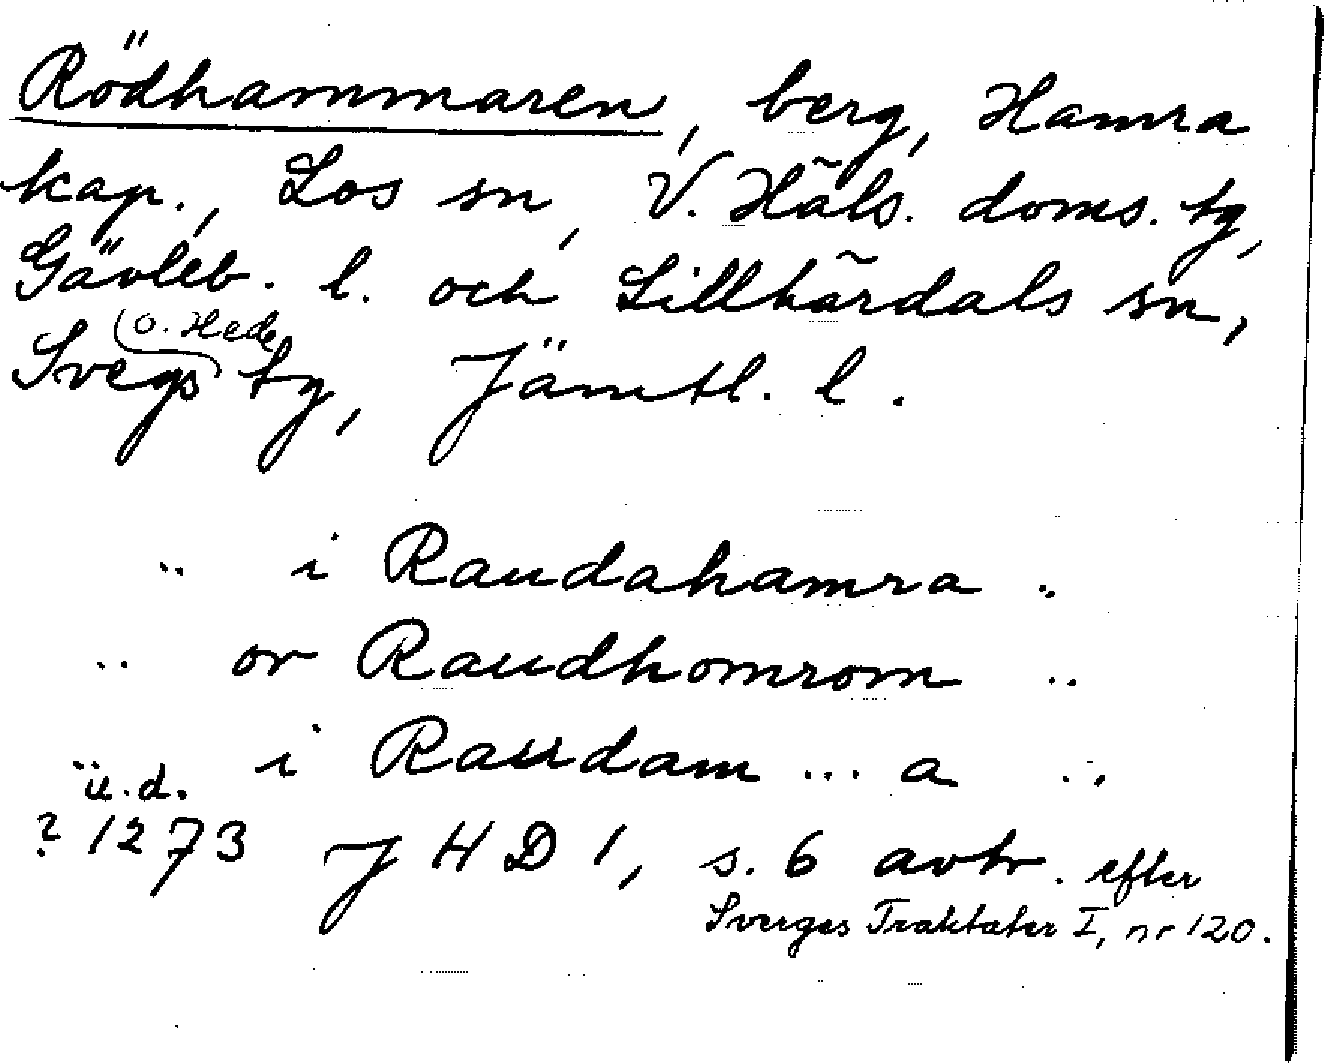 Rödhammaren, berg, Hamra
kap., Los sn, V. Häls. doms. tg,
Gävleb. l. och Lillhärdals sn,
(o. Hede)
Svegs tg, Jämtl. l.
.. i Raudahamra ..
.. or Raudhomrom ..
.. i Raudam ... a ..
u.d.
? 1273 J H D 1, s. 6 avtr. efter
Sverges Traktater I, nr 120.